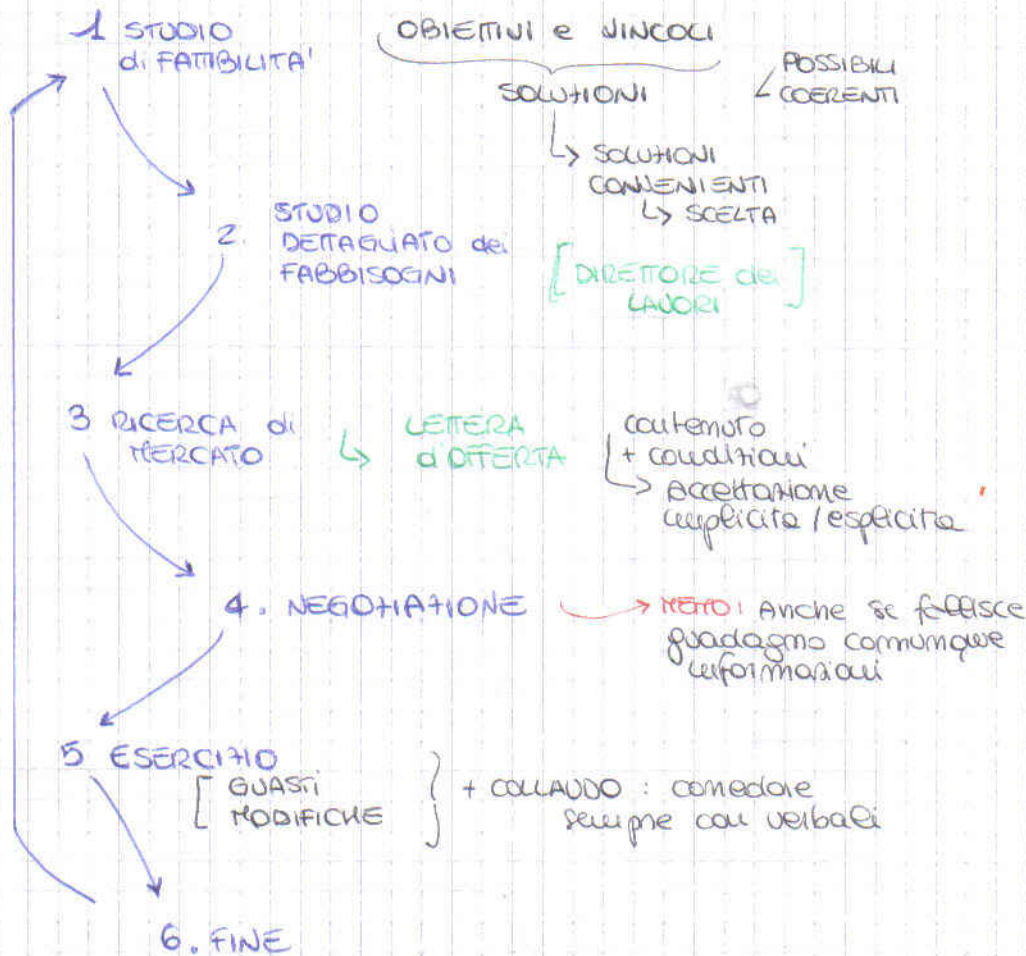 1 STUDIO
di FATTIBILITA'
OBIETTIVI e VINCOLI
SOLUZIONI
POSSIBILI
COERENTI
↳ SOLUZIONI
CONVENIENTI
↳ SCELTA
2. STUDIO
DETTAGLIATO dei
FABBISOGNI
[DIRETTORE dei
LAVORI]
3 RICERCA di
MERCATO
↳ LETTERA
d'OFFERTA
contenuto
+ condizioni
↳ Accettazione
implicita / esplicita
4. NEGOZIAZIONE
→ MEMO: Anche se fallisce
guadagno comunque
informazioni
5 ESERCIZIO
[GUASTI
MODIFICHE}
+ COLLAUDO : corredare
sempre con verbali
6. FINE